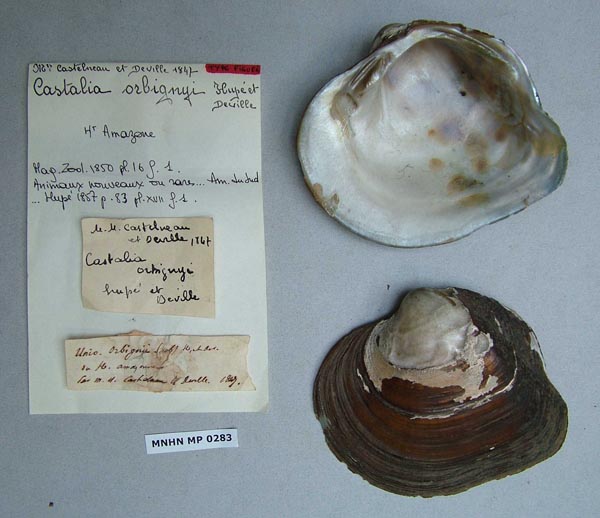 Castelnau et Deville 1847 TYPE FIGURÉ
Castalia orbignyi Hupé et
Deville
Ht Amazone
Mag. Zool. 1850 pl. 16 f. 1.
Animaux nouveaux ou rares... Am. du Sud
... Hupé 1857 p. 83 pl. XVII f. 1.
M. M. Castelnau
et Deville, 1847
Castalia
orbignyi
hupé et
Deville
Unio. Orbignii
Castelnau et Deville. 1847.
MNHN MP 0283